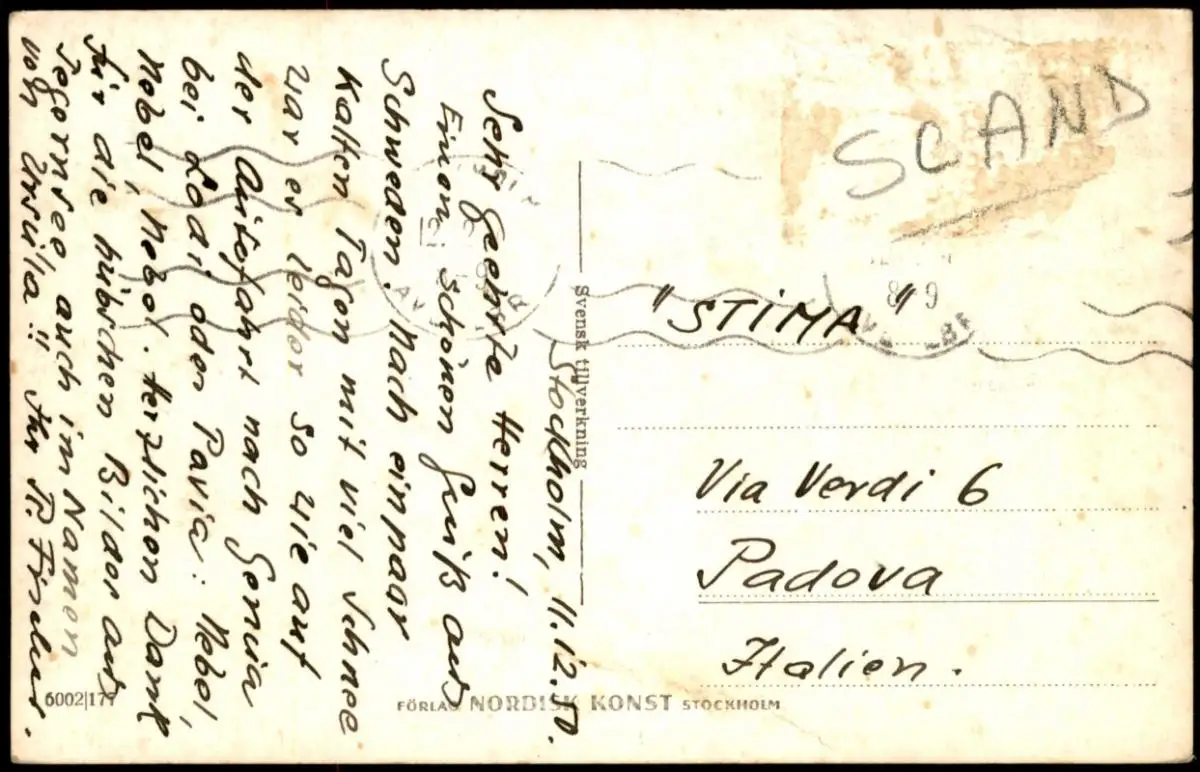 Stockholm, 11.12.
Sehr geehrte Herren!
Einen schönen Gruß aus
Schweden. Nach ein paar
kalten Tagen mit viel Schnee
war es leider so wie auf
der Autofahrt nach Genua
bei Lodi oder Pavia: Nebel,
Nebel, Nebel. Herzlichen Dank
für die hübschen Bilder aus
Tegernsee auch im Namen
von Ursula!! Ihr
SCAND
"STIMA"
Via Verdi 6
Padova
Italien.
Svensk tillverkning
6002|177
FÖRLAG NORDISK KONST STOCKHOLM